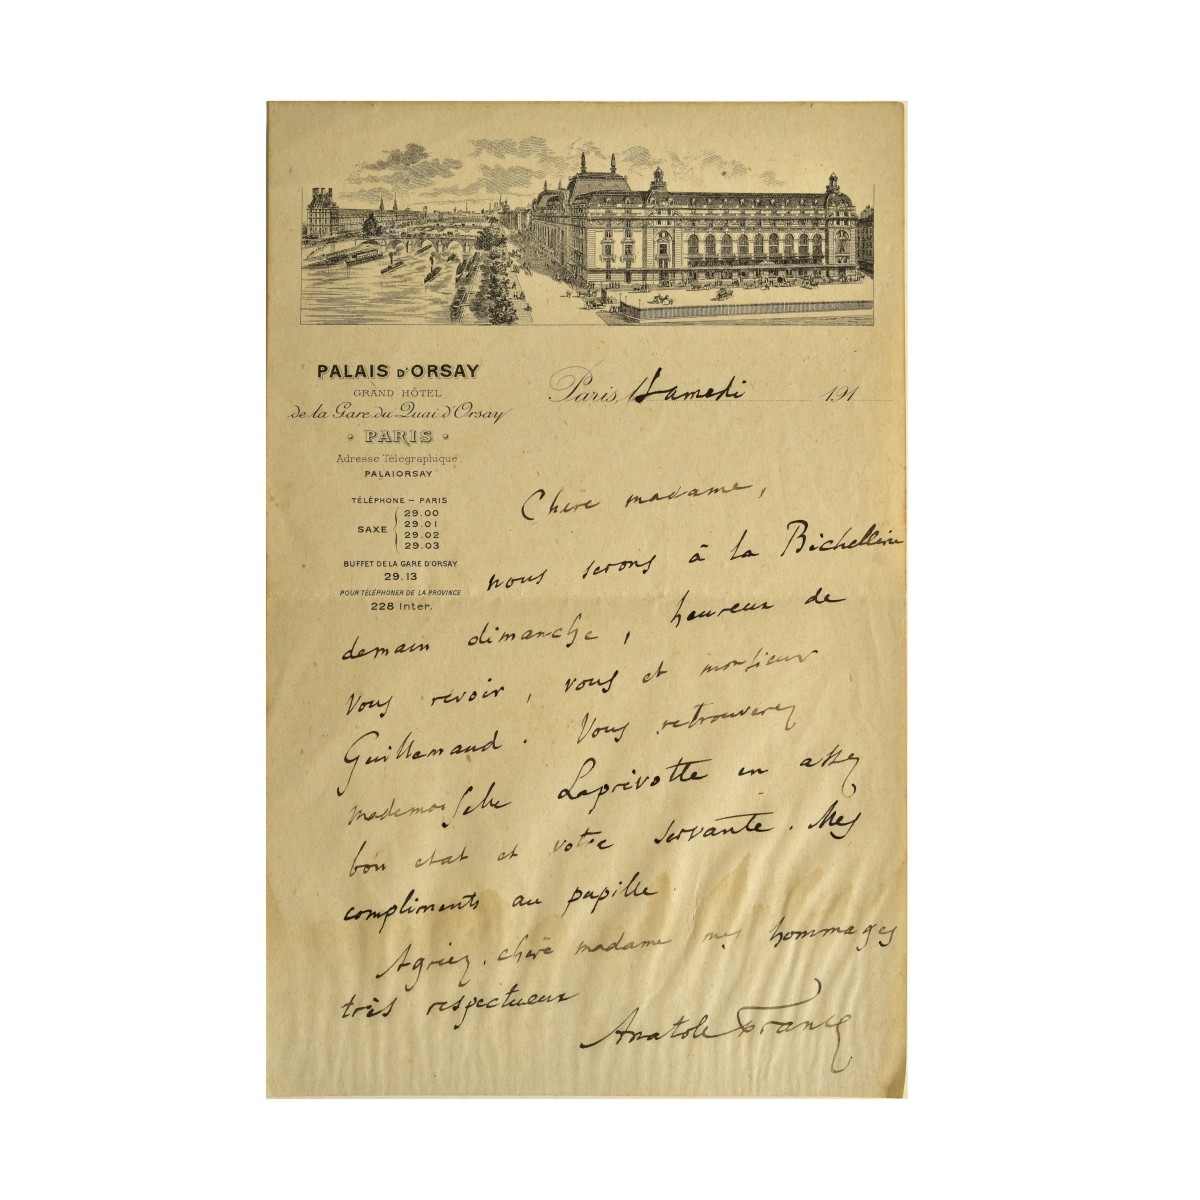 PALAIS D'ORSAY
GRAND HÔTEL
de la Gare du Quai d'Orsay
• PARIS •
Adresse Télégraphique
PALAIORSAY
TÉLÉPHONE – PARIS
SAXE { 29.00
29.01
29.02
29.03
BUFFET DE LA GARE D'ORSAY
29.13
POUR TÉLÉPHONER DE LA PROVINCE
228 Inter.
Paris, Samedi 191
Chère madame,
nous serons à la Bichellerie
demain dimanche, heureux de
vous revoir, vous et monsieur
Guillemaud. Vous retrouverez
mademoiselle Laprévotte en assez
bon etat et votre servante. Mes
compliments au pupille.
Agriez, chère madame mes hommages
très respectueux
Anatole France